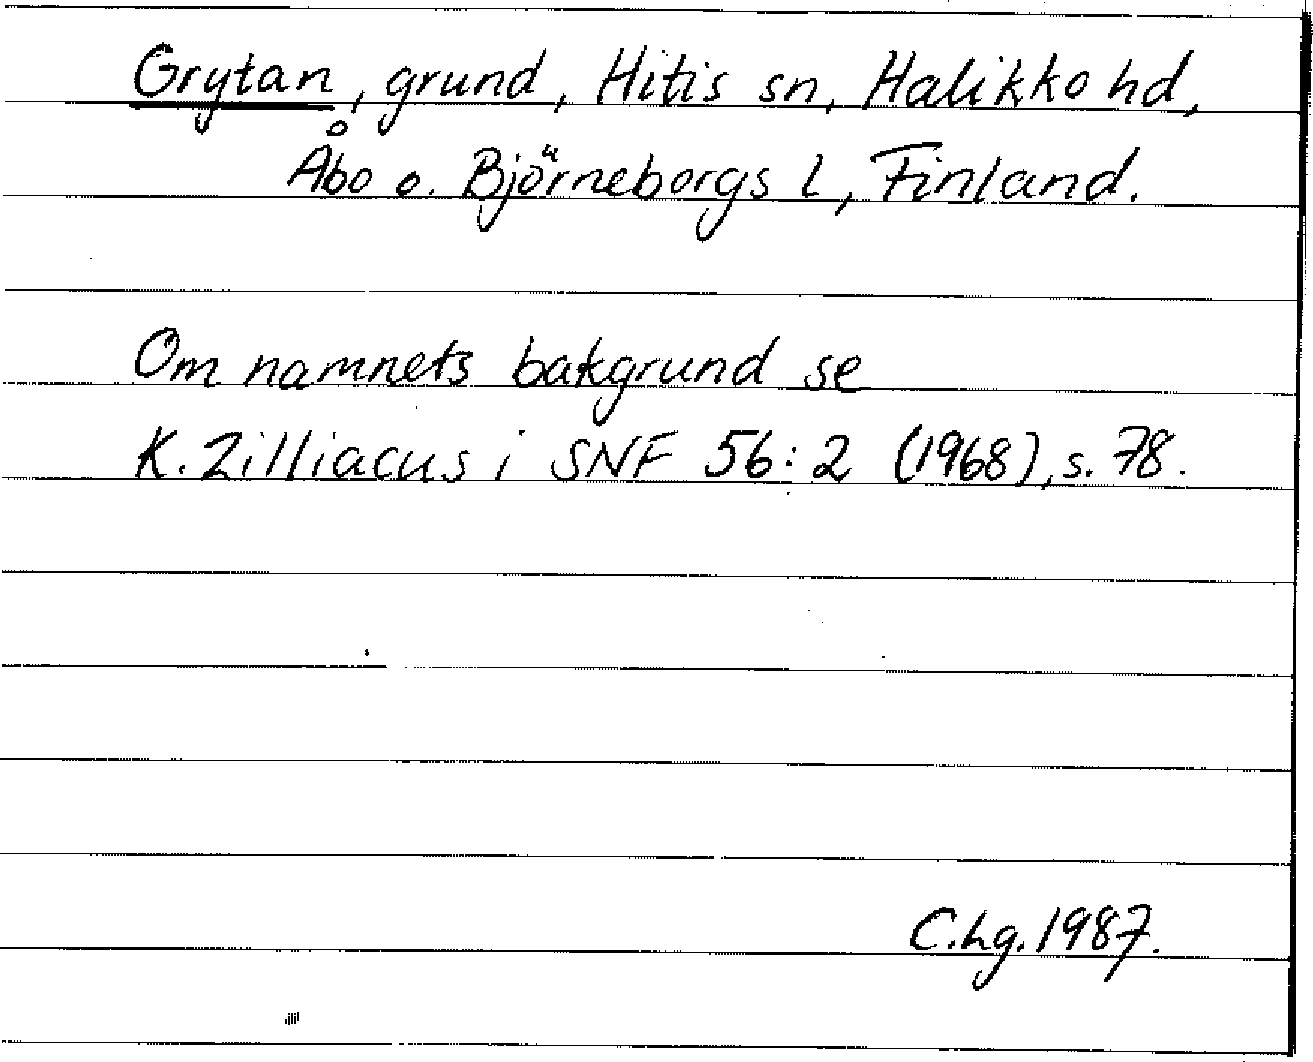 Grytan, grund, Hitis sn, Halikko hd,
Åbo o. Björneborgs l, Finland.
Om namnets bakgrund se
K. Zilliacus i SNF 56:2 (1968), s. 78.
C.hg. 1987.